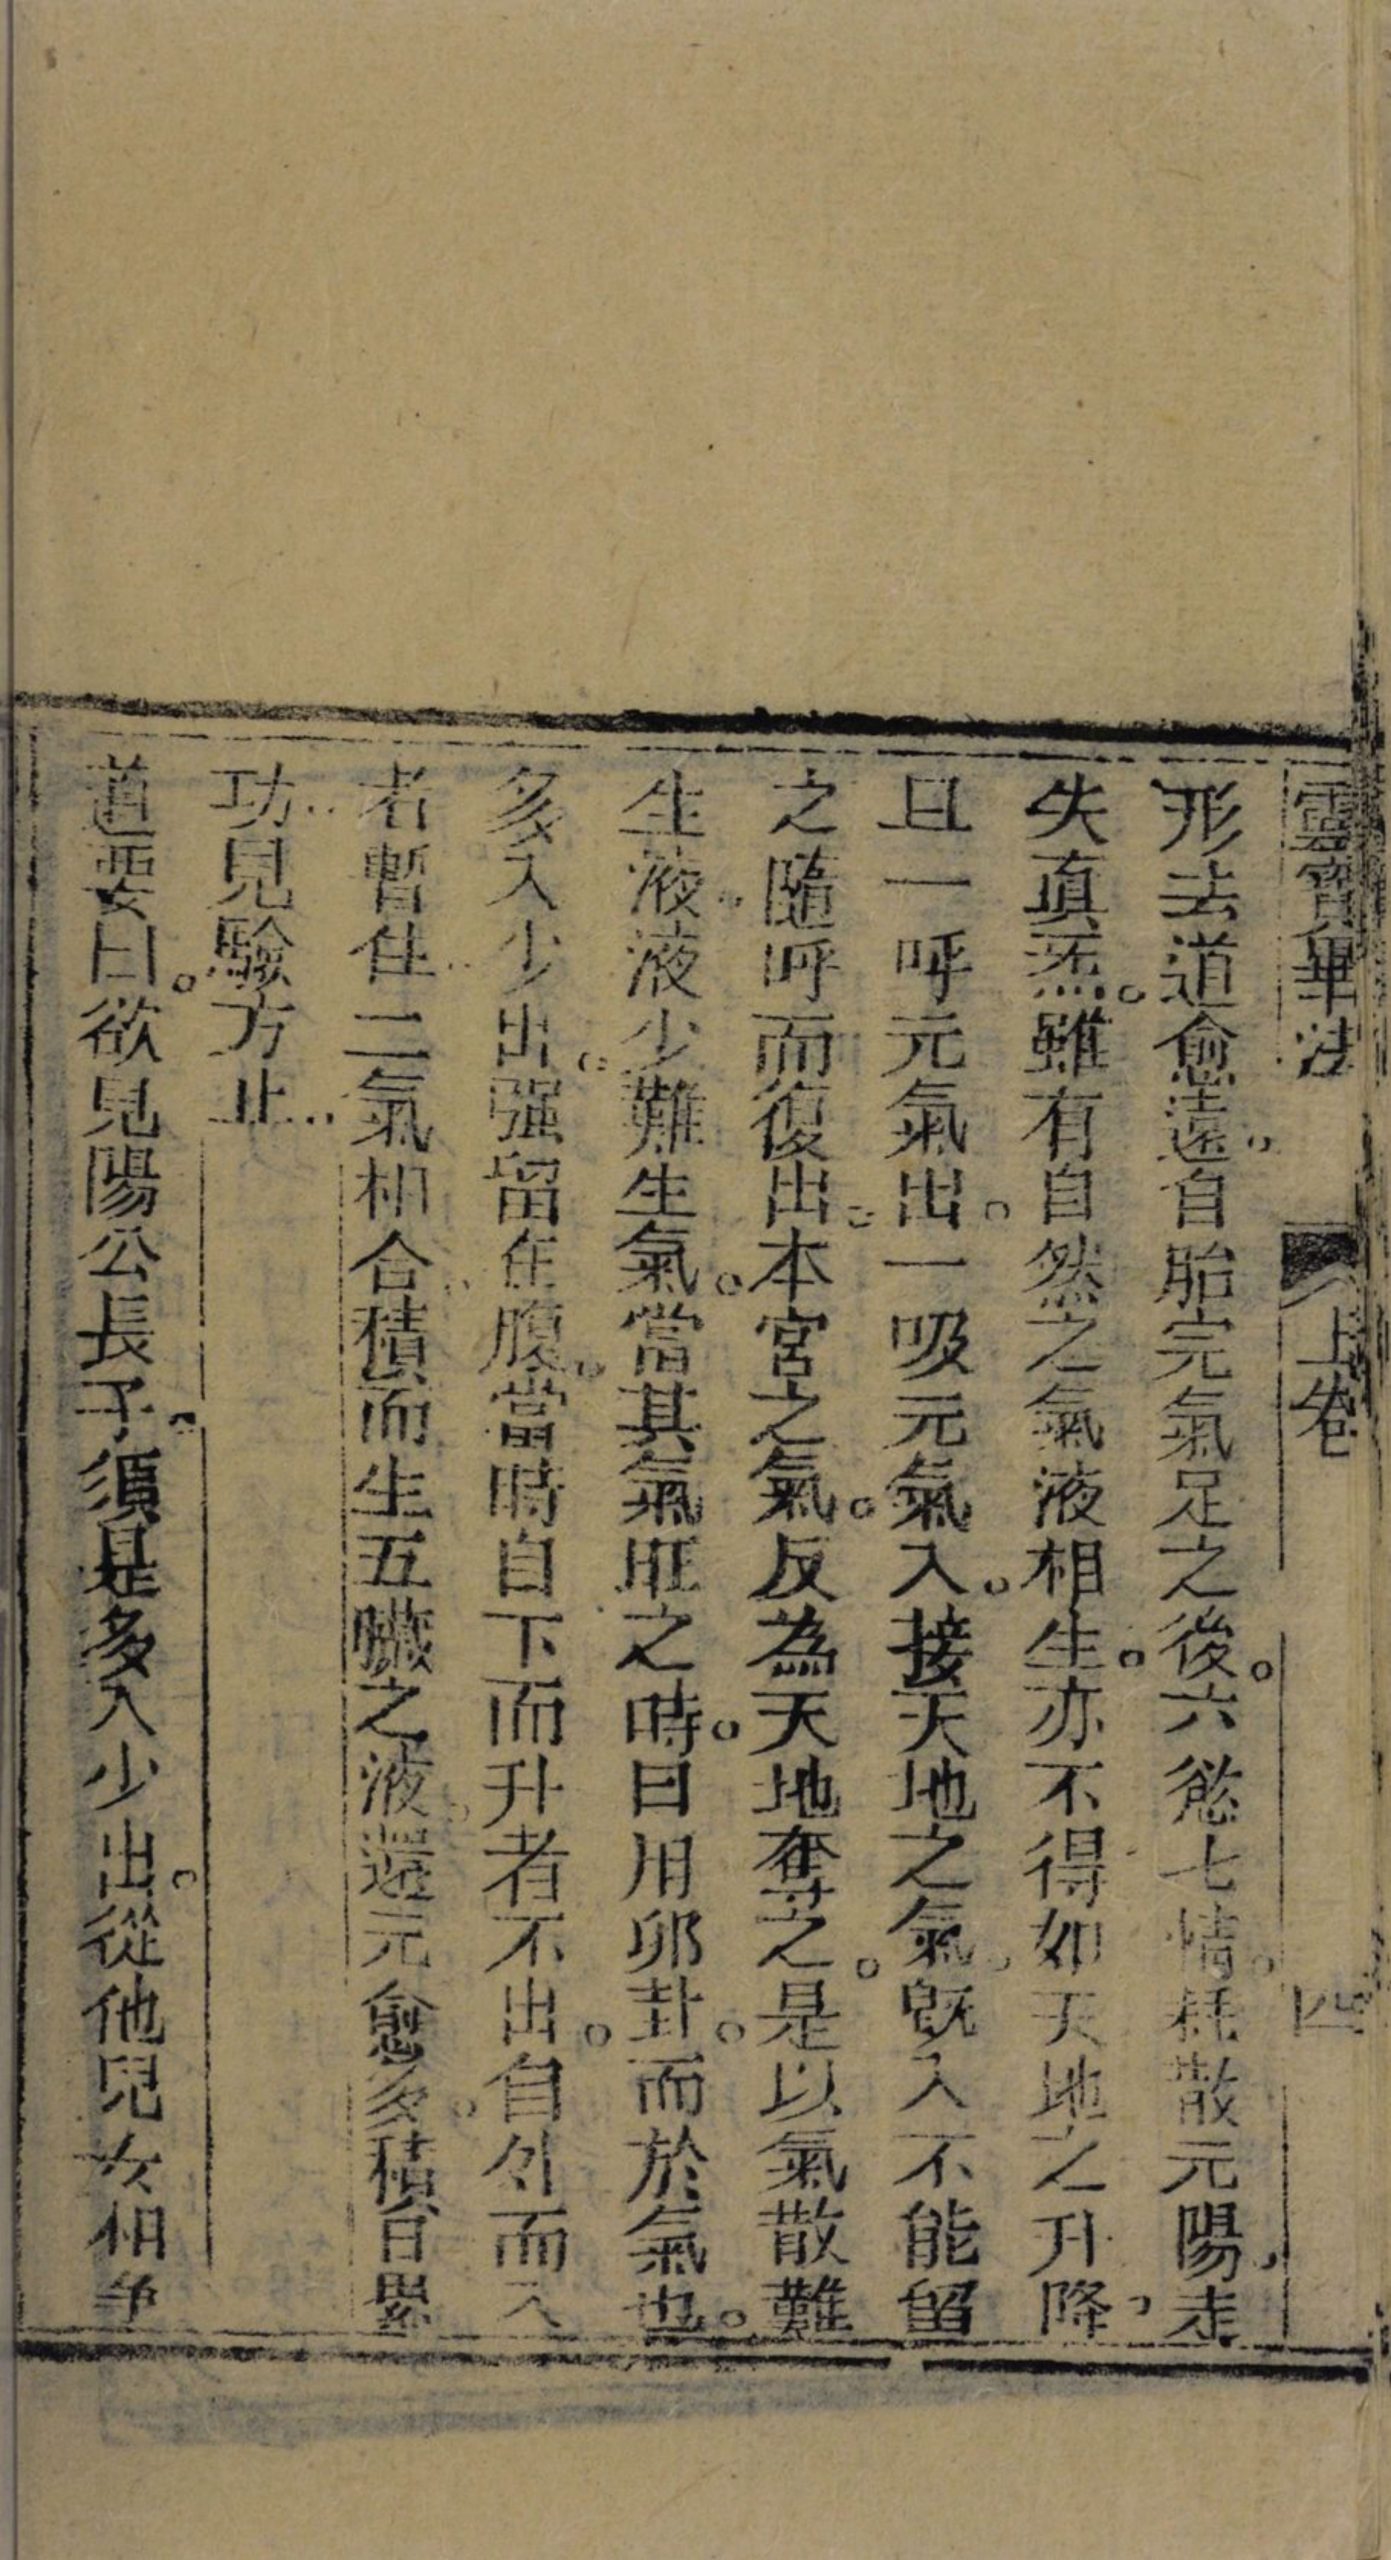 靈寶畢法 上卷 四
形去道愈遠。自胎完氣足之後。六慾七情。耗散元陽。走
失真炁。雖有自然之氣液相生。亦不得如天地之升降。
且一呼元氣出。一吸元氣入。接天地之氣。既入不能留
之隨呼而復出。本宮之氣。反為天地奪之。是以氣散難
生液。液少難生氣。當其氣旺之時。日用卯卦。而於氣也。
多入少出。强留在腹。當時自下而升者不出。自外而入
者暫住。二氣相合。積而生五臟之液。還元愈多。積日累
功。見驗方止。
道要曰。欲見陽公長子。須是多入少出。從他兒女相爭